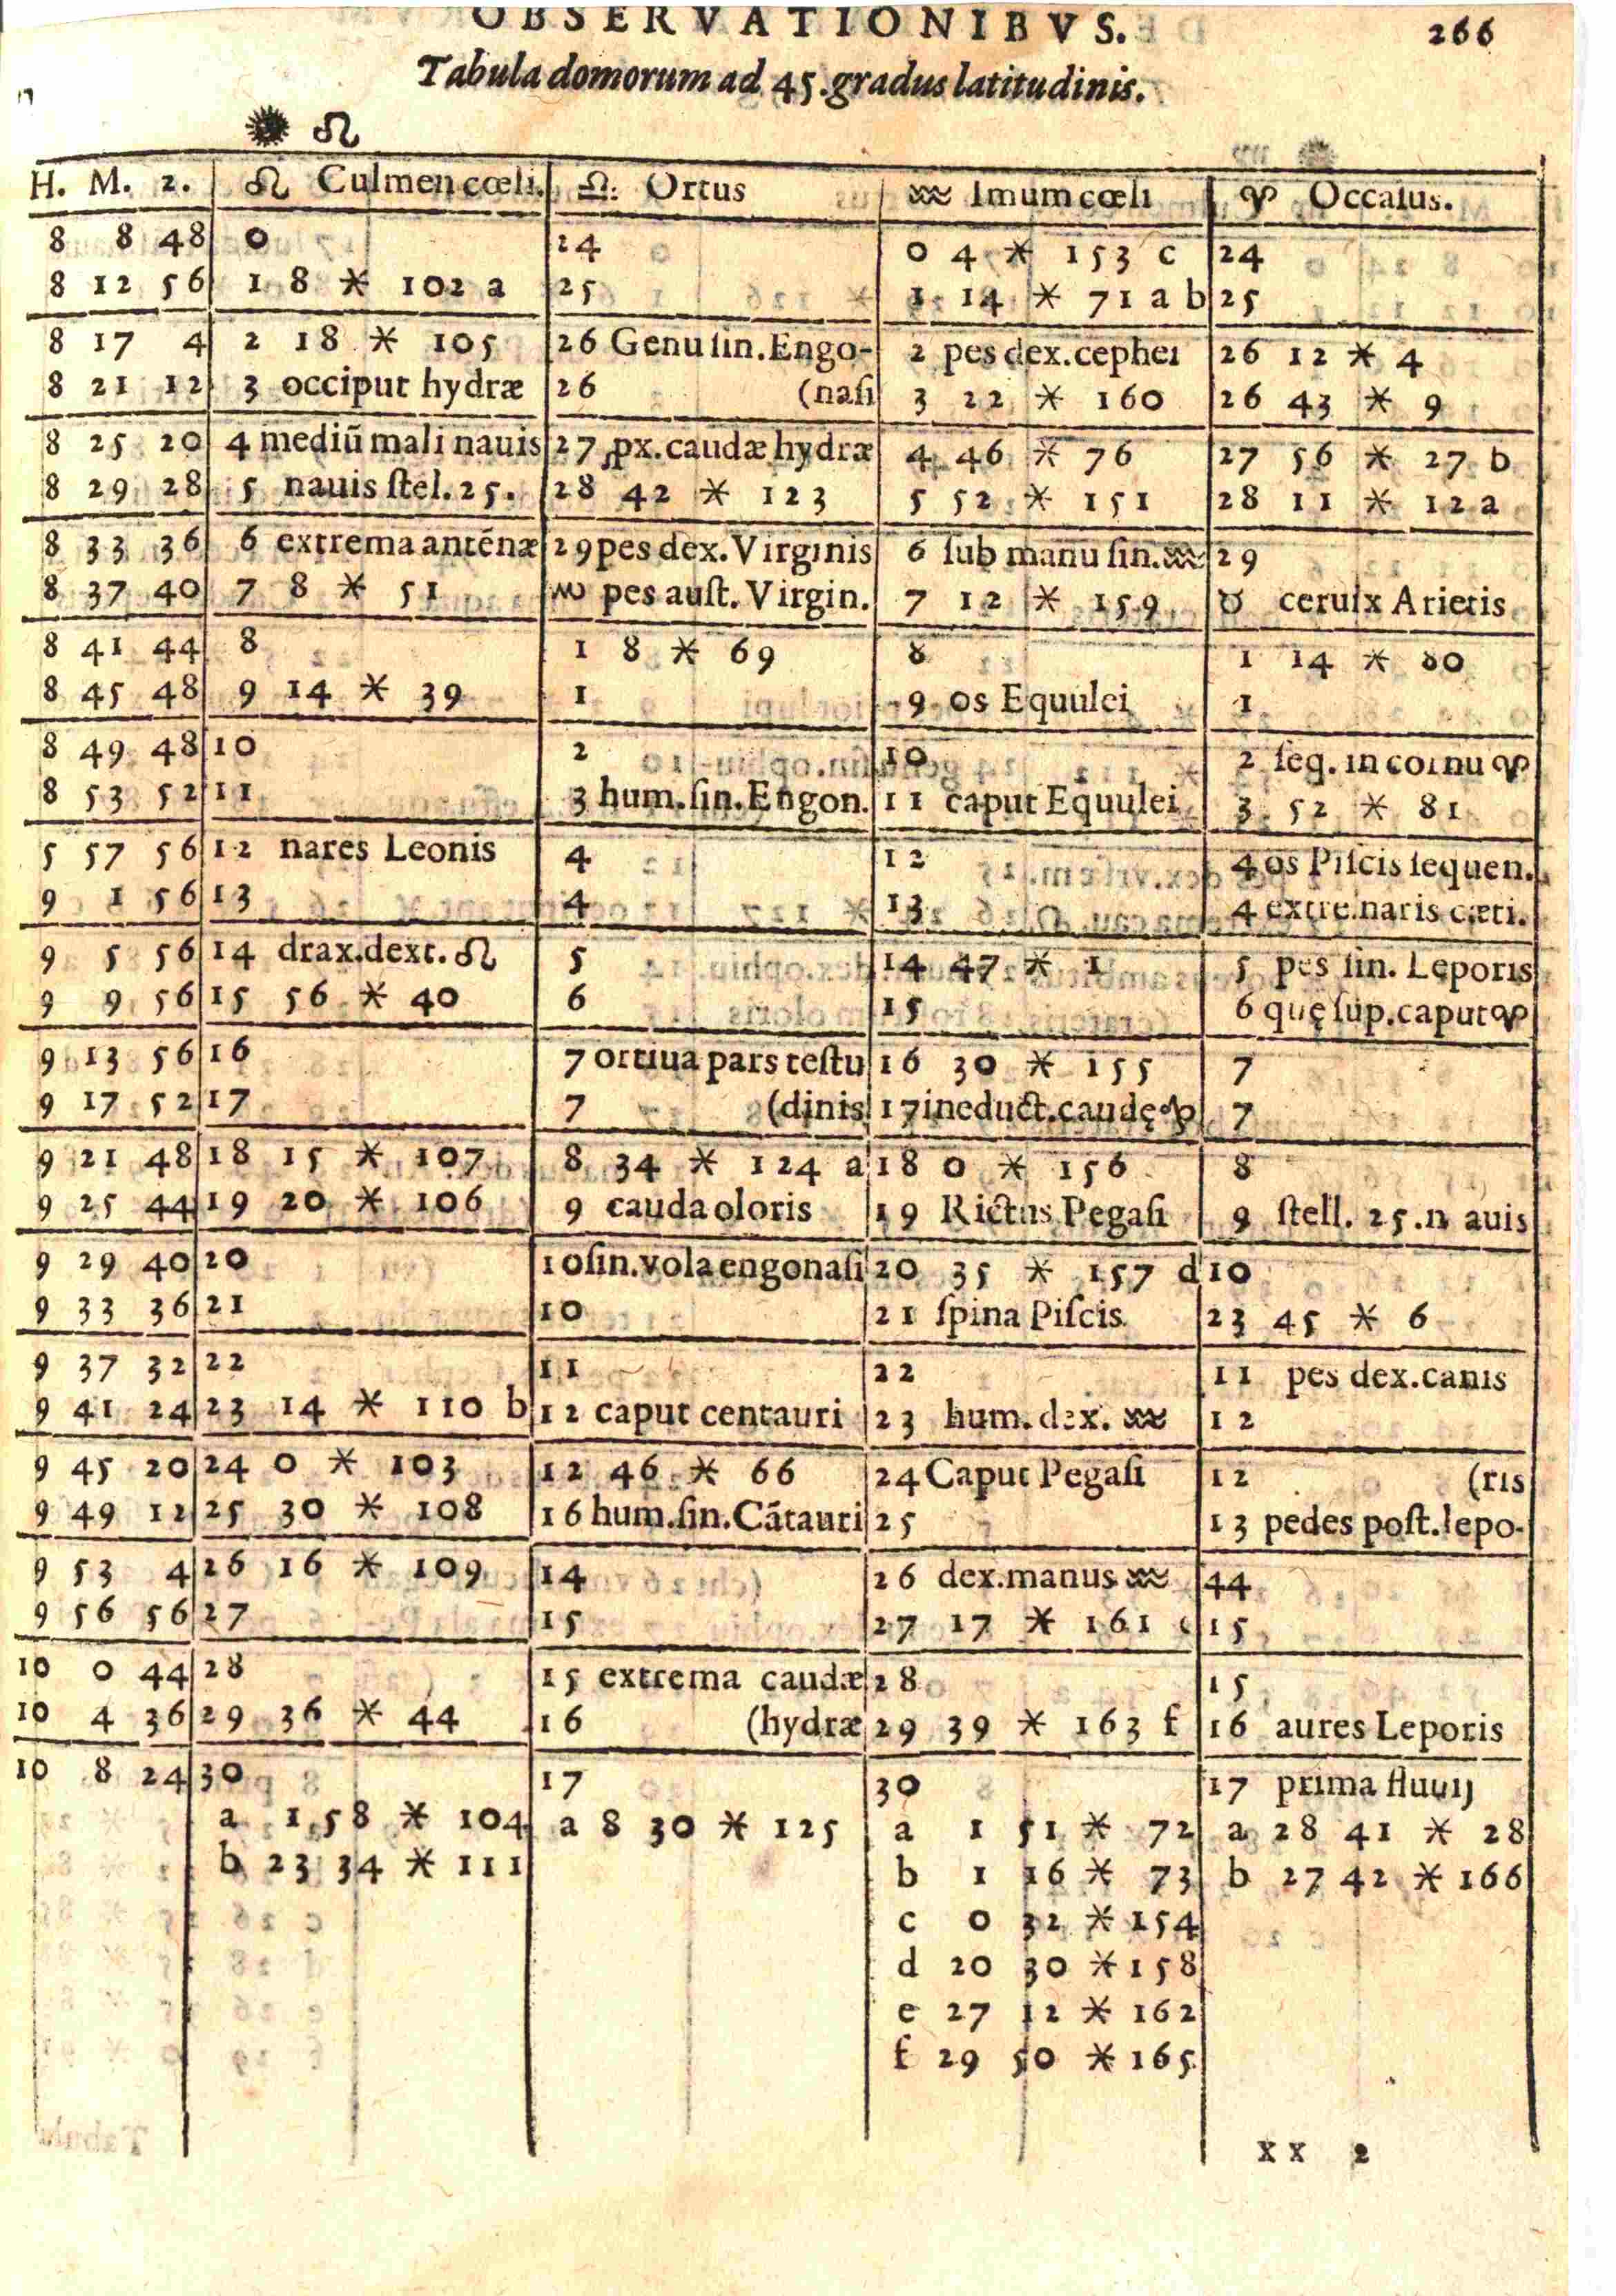 OBSERVATIONIBVS. 266
Tabula domorum ad 45. gradus latitudinis.
☀ ♌
H. M. 2. ♌ Culmen cœli. ♎: Ortus ♒ Imum cœli ♈ Occaſus.
8 8 48 0 24 0 4 * 153 c 24
8 12 56 1 8 * 102 a 25 1 14 * 71 a b 25
8 17 4 2 18 * 105 26 Genu ſin. Engo- 2 pes dex. cephei 26 12 * 4
8 21 12 3 occiput hydræ 26 (naſi 3 22 * 160 26 43 * 9
8 25 20 4 mediũ mali nauis 27 ꝓx. caudæ hydræ 4 46 * 76 27 56 * 27 b
8 29 28 5 nauis ſtel. 25. 28 42 * 123 5 52 * 151 28 11 * 12 a
8 33 36 6 extrema antẽnæ 29 pes dex. Virginis 6 ſub manu ſin. ♒ 29
8 37 40 7 8 * 51 ♏ pes auſt. Virgin. 7 12 * 159 ♉ ceruix Arietis
8 41 44 8 1 8 * 69 8 1 14 * 80
8 45 48 9 14 * 39 1 9 os Equulei 1
8 49 48 10 2 10 2 ſeq. in cornu ♈
8 53 52 11 3 hum. ſin. Engon. 11 caput Equulei 3 52 * 81
5 57 56 12 nares Leonis 4 12 4 os Piſcis ſequen.
9 1 56 13 4 13 4 extre. naris cæti.
9 5 56 14 drax. dext. ♌ 5 14 47 * 1 5 pes ſin. Leporis
9 9 56 15 56 * 40 6 15 6 quę ſup. caput ♈
9 13 56 16 7 ortiua pars teſtu 16 30 * 155 7
9 17 52 17 7 (dinis 17 in educt. caudę ♑ 7
9 21 48 18 15 * 107 8 34 * 124 a 18 0 * 156 8
9 25 44 19 20 * 106 9 cauda oloris 19 Rictus Pegaſi 9 ſtell. 25. n auis
9 29 40 20 10 ſin. vola engonaſi 20 35 * 157 d 10
9 33 36 21 10 21 ſpina Piſcis 23 45 * 6
9 37 32 22 11 22 11 pes dex. canis
9 41 24 23 14 * 110 b 12 caput centauri 23 hum. dex. ♒ 12
9 45 20 24 0 * 103 12 46 * 66 24 Caput Pegaſi 12 (ris
9 49 12 25 30 * 108 16 hum. ſin. Cãtauri 25 13 pedes poſt. lepo-
9 53 4 26 16 * 109 14 26 dex. manus ♒ 44
9 56 56 27 15 27 17 * 161 15
10 0 44 28 15 extrema caudæ 28 15
10 4 36 29 36 * 44 16 (hydræ 29 39 * 163 f 16 aures Leporis
10 8 24 30 17 30 17 prima fluuij
a 1 58 * 104 a 8 30 * 125 a 1 51 * 72 a 28 41 * 28
b 23 34 * 111 b 1 16 * 73 b 27 42 * 166
c 0 32 * 154
d 20 30 * 158
e 27 12 * 162
f 29 50 * 165
XX 2